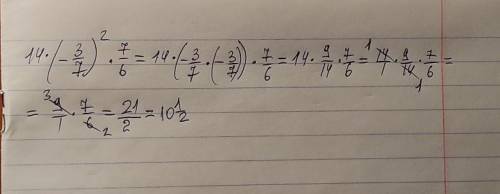 14·(-3/7)²·7/6=14·(-3/7·(-3/7))·7/6=14·9/14·7/6=¹14/1·9/14₁·7/6=
=³9/1·7/6₂=21/2=10 1/2